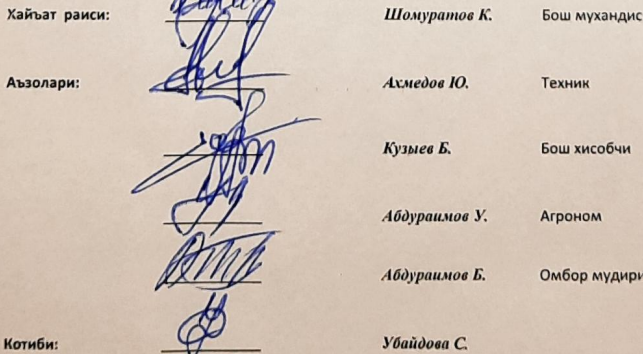 Хайъат раиси: Шомуратов К. Бош мухандис
Аъзолари: Ахмедов Ю. Техник
Кузыев Б. Бош хисобчи
Абдураимов У. Агроном
Абдураимов Б. Омбор мудири
Котиби: Убайдова С.